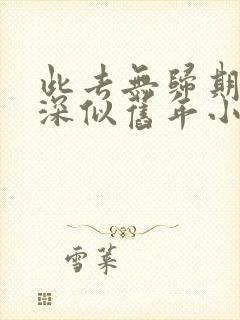 此去無歸期
深似舊年小
雪萊